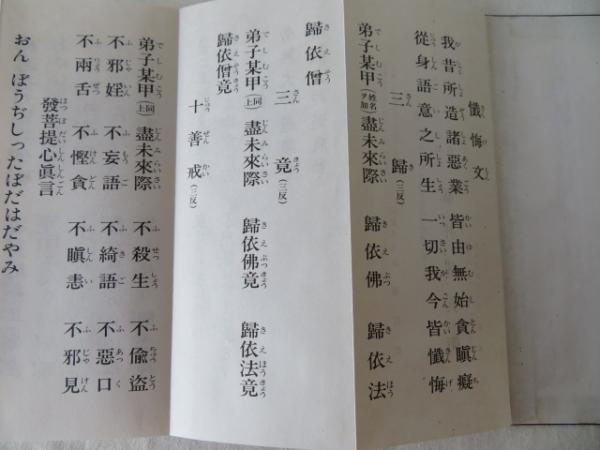 懺悔文
我昔所造諸惡業 皆由無始貪瞋癡
從身語意之所生 一切我今皆懺悔
三歸(三反)
弟子某甲(姓名ヲ加)盡未來際 歸依佛 歸依法
歸依僧
三竟(三反)
弟子某甲(上同)盡未來際 歸依佛竟 歸依法竟
歸依僧竟
十善戒(三反)
弟子某甲(上同)盡未來際 不殺生 不偸盗
不邪婬 不妄語 不綺語 不惡口
不兩舌 不慳貪 不瞋恚 不邪見
發菩提心眞言
おん ぼうぢしったぼだはだやみ